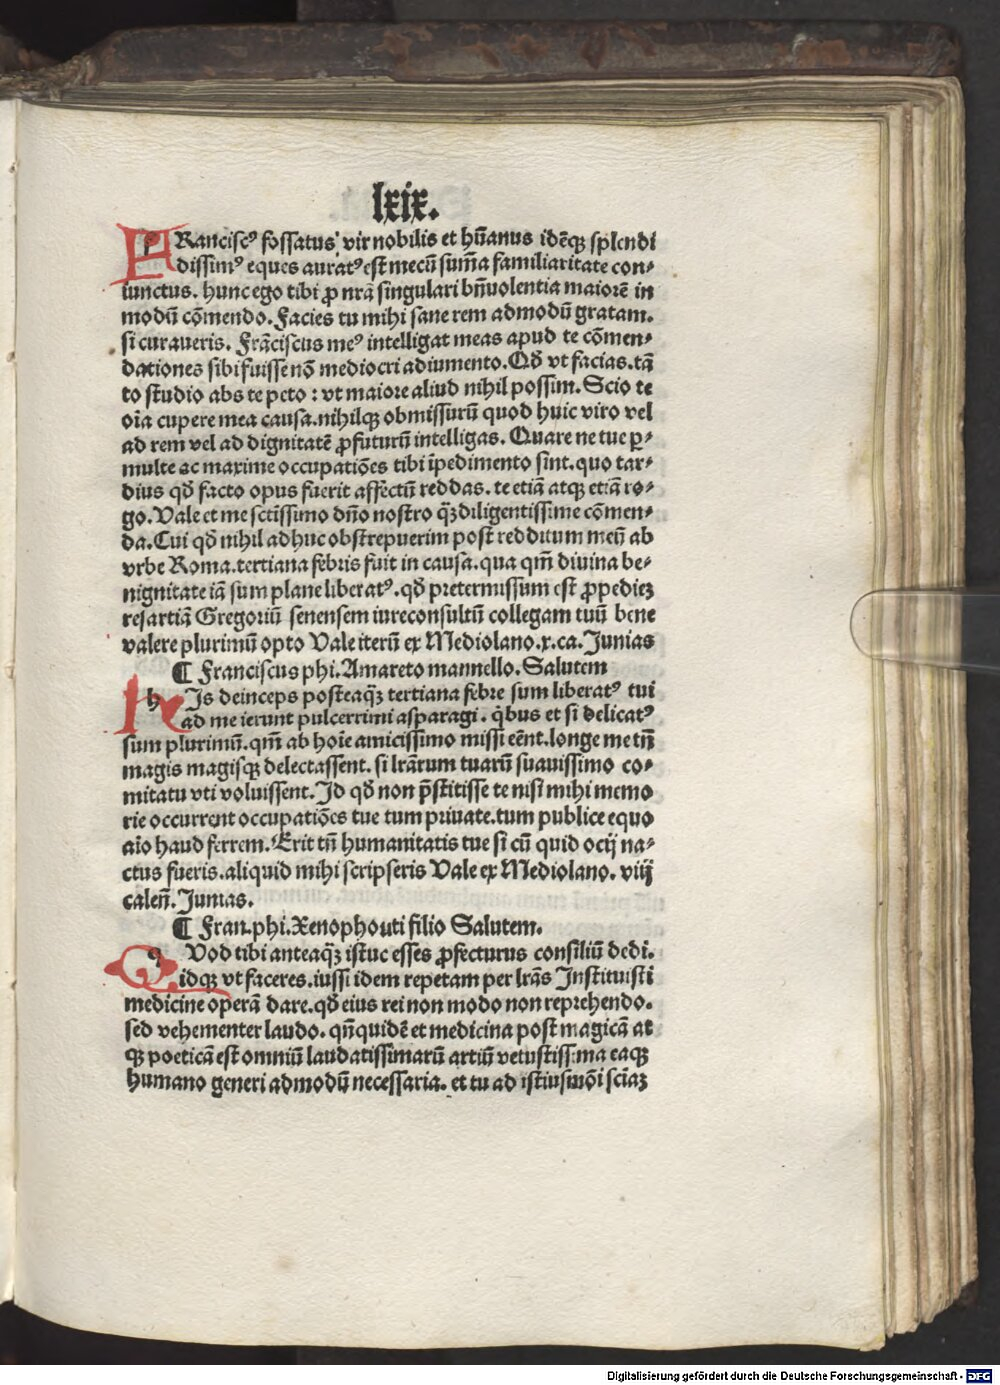 lxix.
FRanciscꝰ fossatus vir nobilis et hūanus idēqꝫ splendi
dissimꝰ eques auratꝰ est mecū sum̄a familiaritate con⸗
iunctus. hunc ego tibi ꝓ nrā singulari bn̄uolentia maiorē in
modū cōmendo. Facies tu mihi sane rem admodū gratam.
si curaueris. Frāciscus meꝰ intelligat meas apud te cōmen⸗
dationes sibi fuisse nō mediocri adiumento. Qđ vt facias. tā
to studio abs te peto : vt maiore aliud nihil possim. Scio te
oīa cupere mea causa. nihilqꝫ obmissurū quod huic viro vel
ad rem vel ad dignitatē ꝓfuturū intelligas. Quare ne tue ꝑ⸗
multe ac maxime occupatiōes tibi īpedimento sint. quo tar⸗
dius qđ facto opus fuerit affectū reddas. te etiā atqꝫ etiā ro⸗
go. Vale et me sctīssimo dn̄o nostro qꝫ̄ diligentissime cōmen⸗
da. Cui qđ nihil adhuc obstrepuerim post redditum meū ab
vrbe Roma. tertiana febris fuit in causa. qua qm̄ diuina be⸗
nignitate iā sum plane liberatꝰ. qđ pretermissum est ꝓpediez
resartiā Gregoriū senensem iureconsultū collegam tuū bene
valere plurimū opto Vale iterū ex Mediolano. x. ca. Junias
¶ Franciscus phi. Amareto mannello. Salutem
hJs deinceps posteaqꝫ̄ tertiana febre sum liberatꝰ tui
ad me ierunt pulcerrimi asparagi . q̇bus et si delicatꝰ
sum plurimū. qm̄ ab hoīe amicissimo missi eēnt. longe me tn̄
magis magisqꝫ delectassent. si lrārum tuarū suauissimo co⸗
mitatu vti voluissent. Jd qđ non p̄stitisse te nisi mihi memo
rie occurrent occupatiōes tue tum priuate. tum publice equo
aīo haud ferrem. Erit tn̄ humanitatis tue si cū quid ocij na⸗
ctus fueris. aliquid mihi scripseris Vale ex Mediolano. viij
calen̄. Junias.
¶ Fran. phi. Xenophonti filio Salutem.
qVod tibi anteaqꝫ̄ istuc esses ꝓfecturus consiliū dedi.
idqꝫ vt faceres. iussi idem repetam per lrās Instituisti
medicine operā dare. qđ eius rei non modo non reprehendo.
sed vehementer laudo. qn̄quidē et medicina post magicā at
qꝫ poeticā est omniū laudatissimarū artiū vetustissima eaqꝫ
humano generi admodū necessaria. et tu ad istiusmōi sciāꝫ
Digitalisierung gefördert durch die Deutsche Forschungsgemeinschaft - DFG